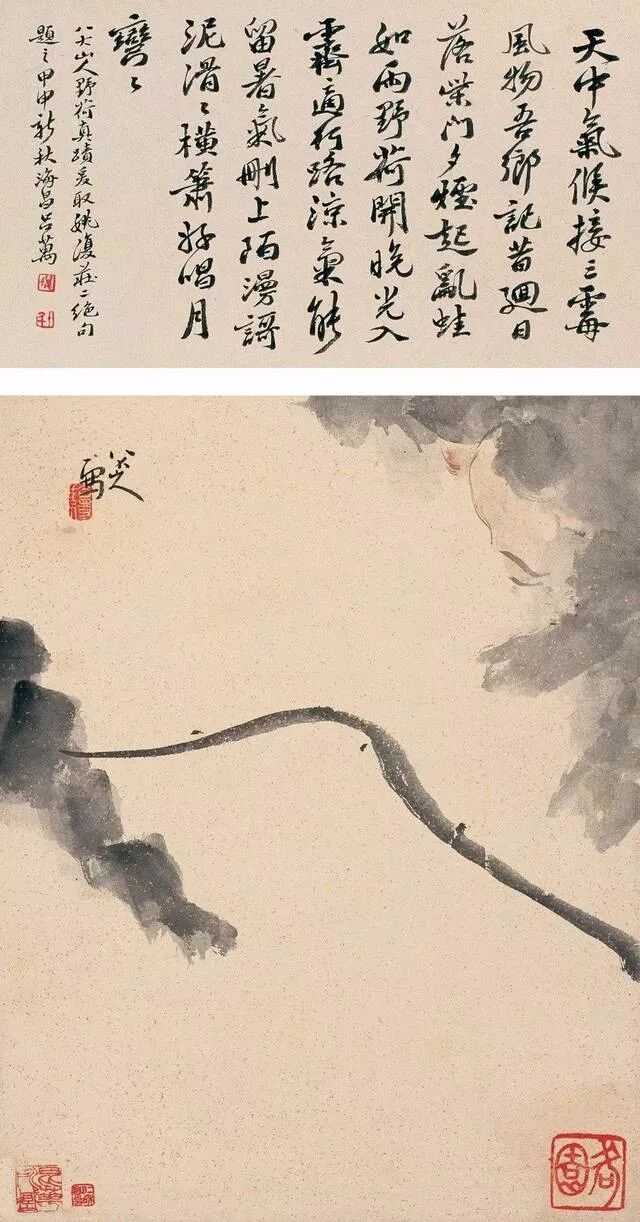 天中氣候接三霉
風物吾鄉記昔廻日
落柴門夕煙起亂蛙
如雨野荷開晚光入
霽適行路涼氣能
留暑氣刪上陌漫謌
泥滑々橫簫好唱月
彎々
八大山人野荷真蹟爰取姚復莊二絕句
題之甲申新秋海昌呂萬
八大山人
寫